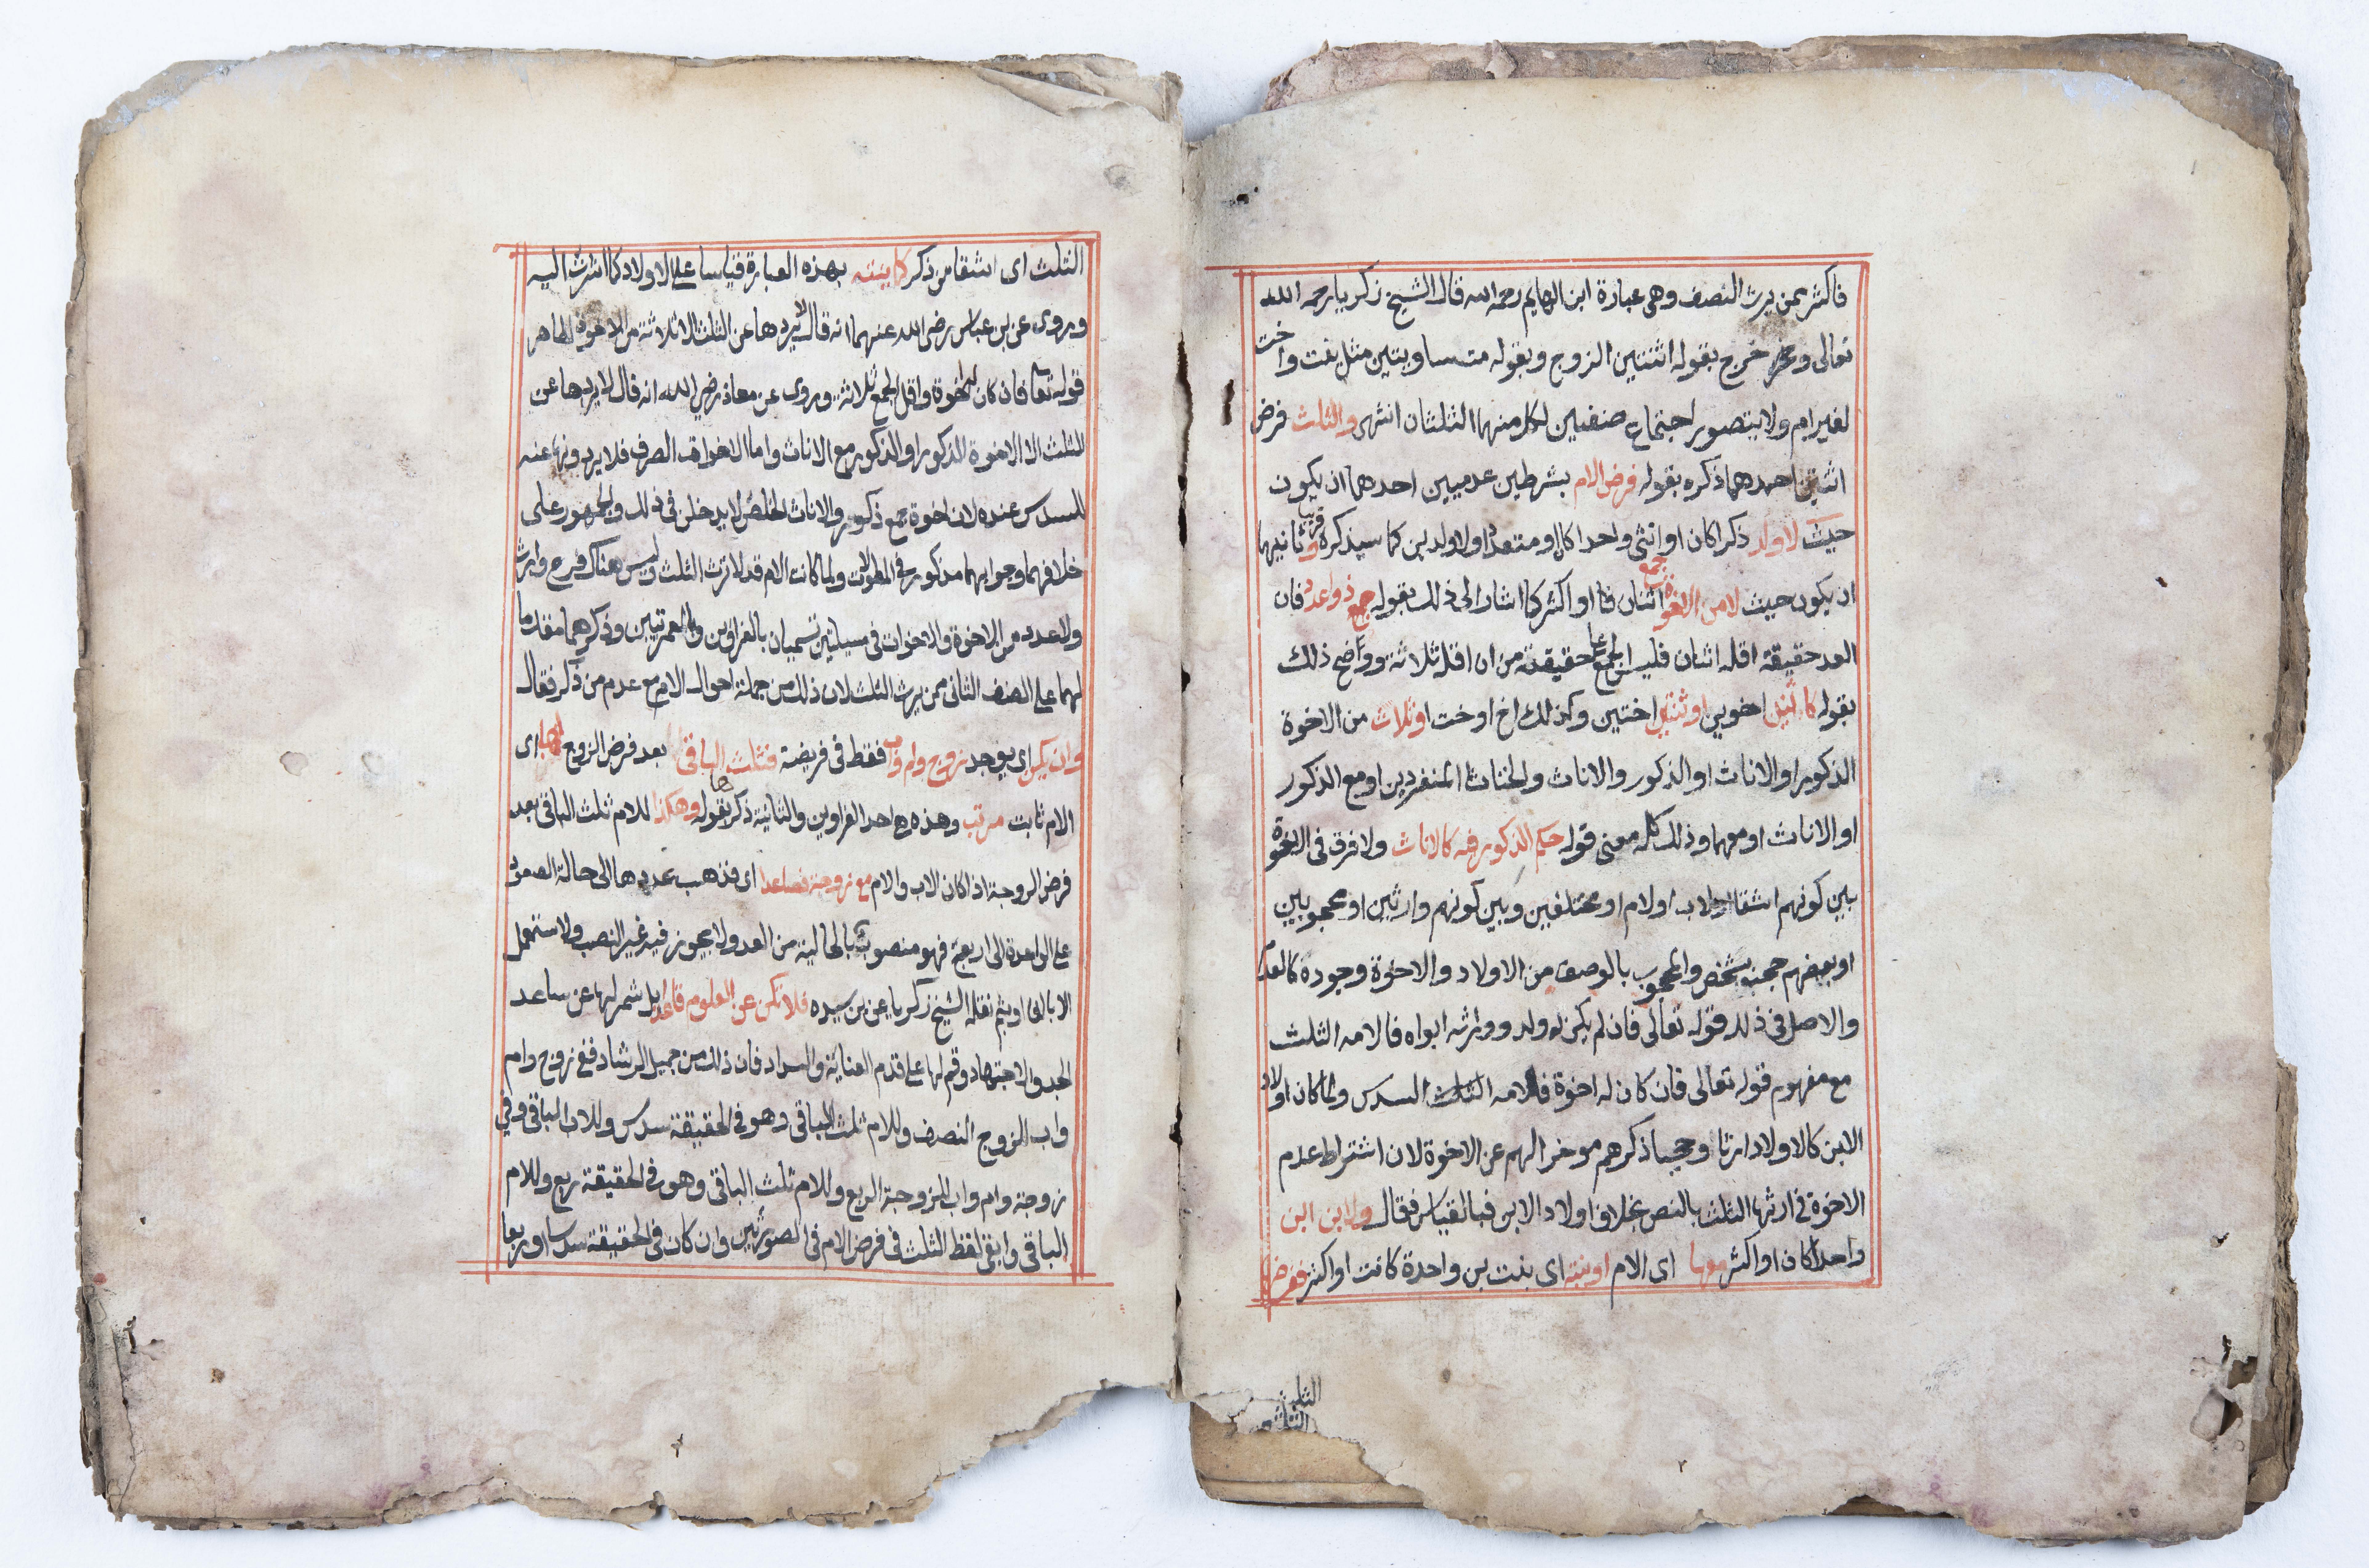 فاكثر ممن يرث النصف وهى عبارة ابن الهايم رحمه الله قال الشيخ زكريا رحمه الله
تعالى خرج بقوله اثنتين الزوج وبقوله متساويتين مثل بنت واخت
لغير ام ولا يتصور اجتماع صنفين لكل منهما الثلثان انتهى والثلث فرض
اثنين احدهما ذكره بقوله فرض الام بشرطين عدميين احدهما ان يكون
حيث لا ولد ذكرا كان او انثى واحدا كان او متعددا او لا ولد بن كما سيذكره قريبا وثانيهما
ان يكون حيث لا من الاخوة جمع اثنان فا او اكثر كما اشار الى ذلك بقوله جمع ذو عدد فان
العدد حقيقة اقله اثنان فليس الجمع على حقيقته من ان اقله ثلاثة وواضح ذلك
بقوله كاثنين اخوين او ثنتين اختين وكذلك اخ او خت او ثلاث من الاخوة
الذكور او الاناث او الذكور والاناث والخناثا المنفردين او مع الذكور
او الاناث او معهما وذلك كله معنى قوله حكم الذكور فيه كالاناث ولا فرق فى الاخوة
بين كونهم اشقا او لاب او لام او مختلفين وبين كونهم وارثين او محجوبين
او بعضهم حجب بشخص والمحجوب بالوصف من الاولاد والاخوة وجوده كالعدم
والاصل فى ذلك قوله تعالى فان لم يكن له ولد وورثه ابواه فالامه الثلث
مع مفهوم قوله تعالى فان كان له اخوة فلامه السدس ولما كان اولاد
الابن كالاولاد ارثا وحجبا ذكرهم موخرا لهم عن الاخوة لان اشتراط عدم
الاخوة فى ارثها الثلث بالنص بخلاف اولاد الابن فبالقياس فقال ولا بن ابن
واحدا كان او اكثر معها اى الام او بنته اى بنت بن واحدة كانت او اكثر ففرضها
الثلث
الثلث
الثلث اى انتفا من ذكر كما بينته بهذه العبارة قياسا على الاولاد كما اشرت اليه
وروى عن بن عباس رضى الله عنهما انه قال لا يردها عن الثلث الا ثلاثة من الاخوة لظاهر
قوله تعا فان كان له اخوة واقل الجمع ثلاثة وروى عن معاذ رضي الله انه قال لا يردها عن
الثلث الا الاخوة الذكور او الذكور مع الاناث واما الاخوات الصرف فلا يردونها عنه
للسدس عنده لان اخوة جمع ذكور والاناث الخلص لا يدخلن فى ذلك والجمهور على
خلافهما وجوابهما مذكور فى المطولات ولما كانت الام قد لا ترث الثلث وليس هناك فرع وارث
ولا عدد من الاخوة والاخوات فى مسيلتين تسميان بالغراوين وبالعمريتين وذكرهما مقدما
لهما على الصنف الثانى ممن يرث الثلث لان ذلك من جملة احوال الام مع عدم من ذكر فقال
وان يكن اى يوجد زوج وام واب فقط فى فريضة فثلث الباقى بعد فرض الزوج لها اى
الام ثابت مرتب وهذه هى احد الغراوين والثانية ذكرها بقوله وهكذا للام ثلث الباقى بعد
فرض الزوجة اذا كان الاب والام مع زوجة فصاعدا اى فذهب عددها الى حالة الصعود
على الواحدة الى اربعة فهو منصوب بالحالية من العدد ولا يجوز فيه غير النصب ولا استعمل
الا بالفا او بثم نقله الشيخ زكريا عن بن سيده فلا تكن عن العلوم قاعدا بل شمر لها عن ساعد
الجد والاجتهاد وقم لها على قدم العناية والسداد فان ذلك من جميل الرشاد ففى زوج وام
واب للزوج النصف وللام ثلث الباقى وهو فى الحقيقة سدس وللاب الباقى وفي
زوجة وام واب للزوجة الربع وللام ثلث الباقى وهو فى الحقيقة ربع وللام
الباقى وابقى لفظ الثلث فى فرض الام فى الصورتين وان كان فى الحقيقة سدسا او ربعا